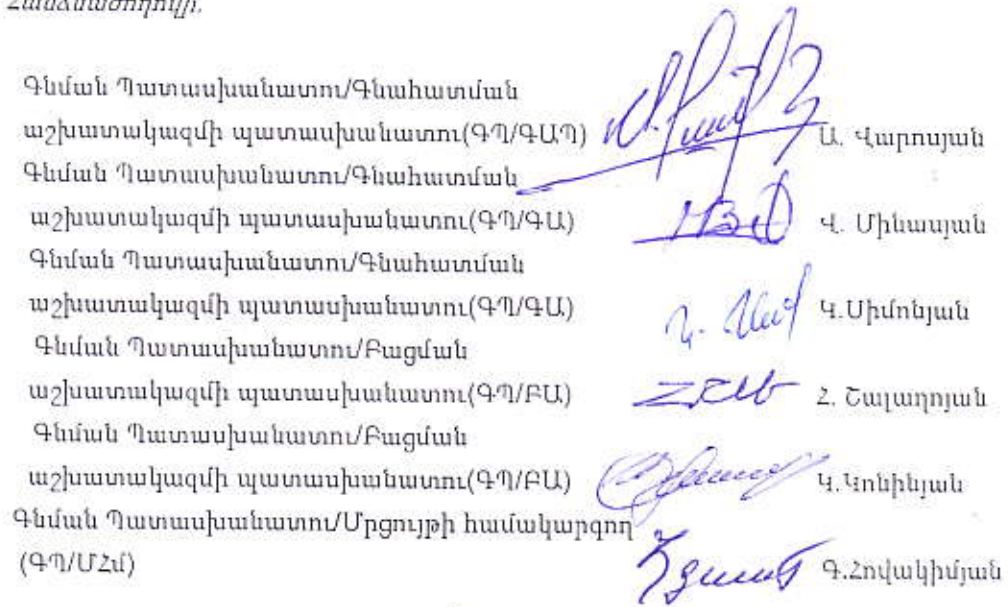 Հանձնաժողովի,
Գնման Պատասխանատու/Գնահատման
աշխատակազմի պատասխանատու(ԳՊ/ԳԱՊ) Ա. Վարոսյան
Գնման Պատասխանատու/Գնահատման
աշխատակազմի պատասխանատու(ԳՊ/ԳԱ) Վ. Մինասյան
Գնման Պատասխանատու/Գնահատման
աշխատակազմի պատասխանատու(ԳՊ/ԳԱ) Կ.Սիմոնյան
Գնման Պատասխանատու/Բացման
աշխատակազմի պատասխանատու(ԳՊ/ԲԱ) Հ. Շալաղոյան
Գնման Պատասխանատու/Բացման
աշխատակազմի պատասխանատու(ԳՊ/ԲԱ) Կ.Կոնինյան
Գնման Պատասխանատու/Մրցույթի համակարգող
(ԳՊ/ՄՀմ) Գ.Հովակիմյան